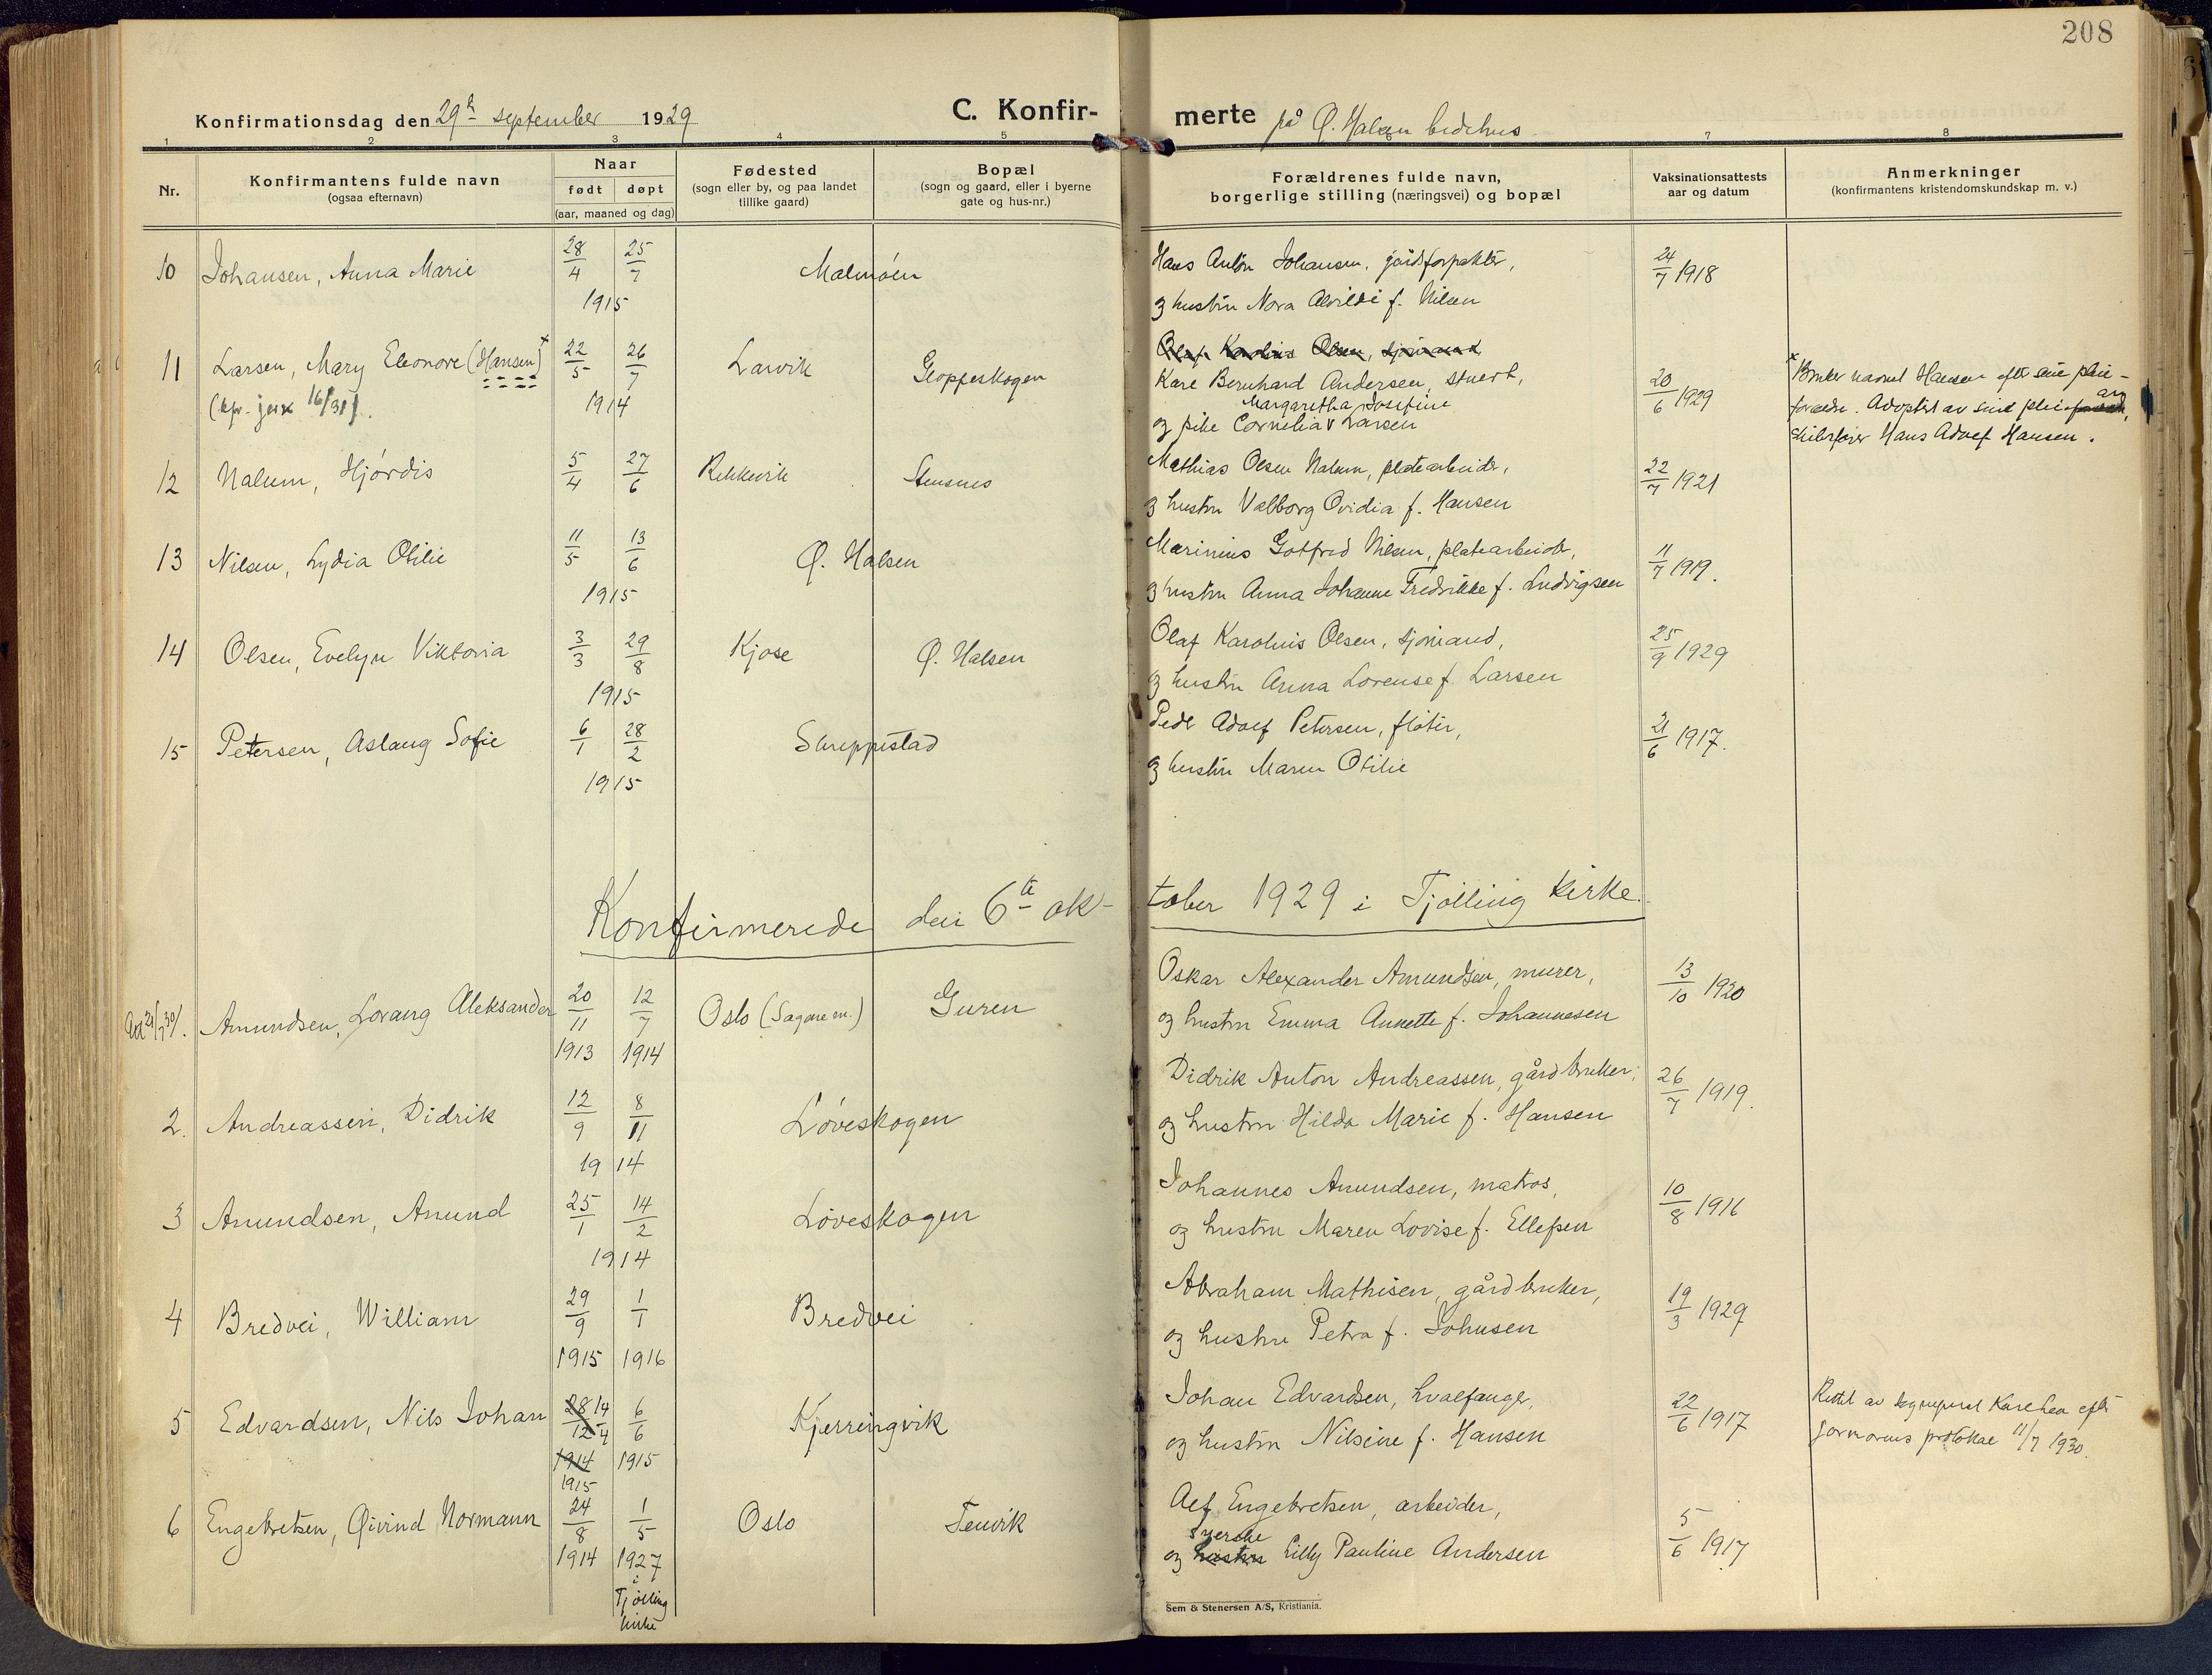 208
Konfirmationsdag den 29de september 1929
C. Konfirmerte på Ø. Halsen bedehus
1 2 3 4 5 6 7 8
Nr.
Konfirmantens fulde navn
(ogsaa efternavn)
Naar
født døpt
(aar, maaned og dag)
Fødested
(sogn eller by, og paa landet
tillike gaard)
Bopæl
(sogn og gaard, eller i byerne
gate og hus-nr.)
Forældrenes fulde navn,
borgerlige stilling (næringsvei) og bopæl
Vaksinationsattests
aar og datum
Anmerkninger
(konfirmantens kristendomskundskap m. v.)
10 Johansen, Anna Marie 28/4 25/7 1915 Malmöen
Hans Anton Johansen, gårdforpakter,
og hustru Nora Alvilde f. Nilsen
24/7 1918
11 Larsen, Mary Eleonore (Hansen) x
16/31
22/5 26/7 1914 Larvik Gloppeskogen
Olaf Karolius Olsen, sjömand,
Kare Bernhard Andersen, stuert,
Margaretha Josefine
og pike Cornelia v Larsen
20/6 1929
x Bruker navnet Hansen efter sine pleie-
forældre. Adoptert av sine pleie
Hans Adolf Hansen.
12 Nalum, Hjördis 5/4 27/6 Rekkevik Stensnes
Mathias Olsen Nalum, platearbeider,
og hustru Valborg Ovidia f. Hansen
22/7 1921
13 Nilsen, Lydia Otilie 11/5 13/6 1915 Ø. Halsen
Marinius Gotfred Nilsen, platearbeider,
og hustru Anna Johanne Fredrikke f. Ludvigsen
11/7 1919.
14 Olsen, Evelyn Viktoria 3/3 29/8 1915 Kjose Ø. Halsen
Olaf Karolius Olsen, sjömand,
og hustru Anna Lorense f. Larsen
25/9 1929
15 Petersen, Aslaug Sofie 6/1 28/2 1915 Skreppestad
Peder Adolf Petersen, fløter,
og hustru Maren Otilie
21/6 1917.
Konfirmerede den 6te oktober 1929 i Tjölling kirke.
Amundsen, Lorang Aleksander 20/11 1913 12/7 1914 Oslo (Sagene m.) Guren
Oskar Alexander Amundsen, murer,
og hustru Emma Annette f. Johannesen
13/10 1920
2. Andreassen, Didrik 12/9 8/11 1914 Löveskogen
Didrik Anton Andreassen, gårdbruker,
og hustru Hilda Marie f. Hansen
26/7 1919.
3 Amundsen, Amund 25/1 14/2 1914 Löveskogen
Johannes Amundsen, matros,
og hustru Maren Lovise f. Ellefsen
10/8 1916
4 Bredvei, William 29/9 1915 1/1 1916 Bredvei
Abraham Mathisen, gårdbruker,
og hustru Petra f. Johnsen
19/3 1929
5 Edvardsen, Nils Johan 28/12 1914 14/4 1915 6/6 1915 Kjerringvik
Johan Edvardsen, hvalfanger,
og hustru Nilsine f. Hansen
22/6 1917
Rettet av sogneprest efter
jormorens protokol 11/7 1930.
6 Engebretsen, Øivind Normann 24/8 1914 1/5 1927 i Tjölling kirke Oslo Tenvik
Alf Engebretsen, arbeider,
syerske
og hustru Lilly Pauline Andersen
5/6 1917
Sem & Stenersen A/S, Kristiania.